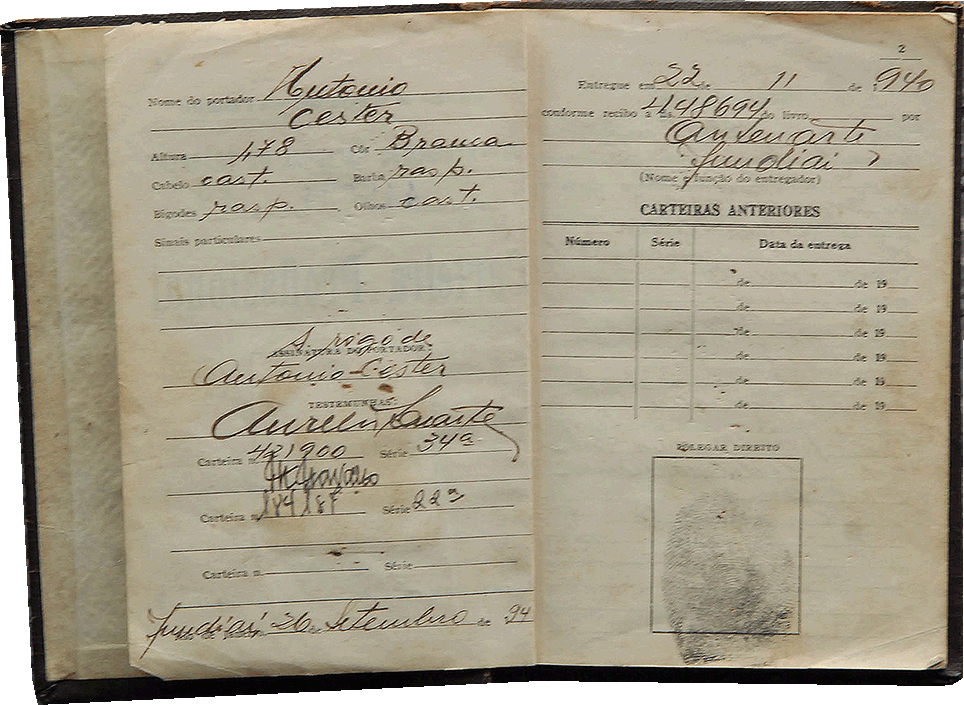 Nome do portador Antonio
Cester
Altura 1,78 Côr Branca
Cabelo cast. Barba rasp.
Bigodes rasp. Olhos cast.
Sinais particulares
A rogo de
ASSINATURA DO PORTADOR:
Antonio Cester
TESTEMUNHAS:
Aurelio Duarte
Carteira n. 421900 Série 34ª
Carteira n. 184187 Série 22ª
Carteira n. Série
Jundiaí 26 Setembro de 94
2
Entregue em 22 de 11 de 1940
conforme recibo a fls. 448694 do livro por
Jundiaí
(Nome e função do entregador)
CARTEIRAS ANTERIORES
Número Série Data da entrega
de de 19
de de 19
de de 19
de de 19
de de 19
de de 19
POLEGAR DIREITO